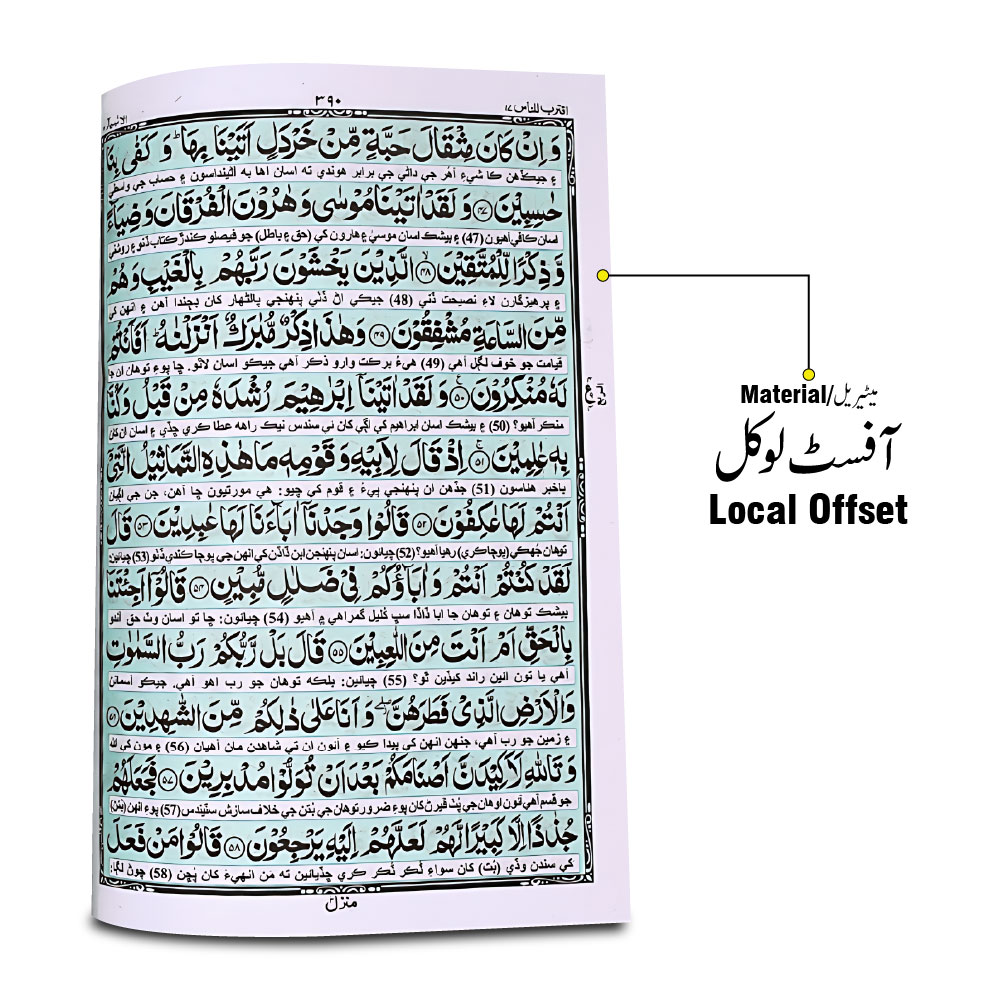 اقترب للناس ١٧
٣٩٠
وَاِنْ كَانَ مِثْقَالَ حَبَّةٍ مِّنْ خَرْدَلٍ اَتَيْنَا بِهَا ؕ وَ كَفٰى بِنَا
۽ جيڪڏهن ڪا شيءِ اَهُر جي داڻي جي برابر هوندي ته اسان اها به آڻينداسون ۽ حساب جي واسطي
حٰسِبِيْنَ ۝٤٧ وَ لَقَدْ اٰتَيْنَا مُوْسٰى وَ هٰرُوْنَ الْفُرْقَانَ وَ ضِيَآءً
اسان ڪافي آهيون (47) ۽ بيشڪ اسان موسيٰ ۽ هارون کي (حق ۽ باطل) جو فيصلو ڪندڙ ڪتاب ڏنو ۽ روشني
وَّ ذِكْرًا لِّلْمُتَّقِيْنَ ۝٤٨ۙ الَّذِيْنَ يَخْشَوْنَ رَبَّهُمْ بِالْغَيْبِ وَ هُمْ
۽ پرهيزگارن لاءِ نصيحت ڏني (48) جيڪي اڻ ڏٺي پنهنجي پالڻهار کان ڊڄندا آهن ۽ انهن کي
مِّنَ السَّاعَةِ مُشْفِقُوْنَ ۝٤٩ وَ هٰذَا ذِكْرٌ مُّبٰرَكٌ اَنْزَلْنٰهُ ؕ اَفَاَنْتُمْ
قيامت جو خوف لڳل آهي (49) هيءُ برڪت وارو ذڪر آهي جيڪو اسان لاٿو. ڇا پوءِ توهان ان جا
لَهٗ مُنْكِرُوْنَ ۝٥٠ۧ وَ لَقَدْ اٰتَيْنَاۤ اِبْرٰهِيْمَ رُشْدَهٗ مِنْ قَبْلُ وَ كُنَّا
منڪر آهيو؟ (50) ۽ بيشڪ اسان ابراهيم کي اڳي کان ئي سندس نيڪ راهه عطا ڪري ڇڏي ۽ اسان ان کان
بِهٖ عٰلِمِيْنَ ۝٥١ۚ اِذْ قَالَ لِاَبِيْهِ وَ قَوْمِهٖ مَا هٰذِهِ التَّمَاثِيْلُ الَّتِيْۤ
باخبر هئاسون (51) جڏهن ان پنهنجي پيءُ ۽ قوم کي چيو: هي مورتيون ڇا آهن، جن جي اڳيان
اَنْتُمْ لَهَا عٰكِفُوْنَ ۝٥٢ قَالُوْا وَجَدْنَاۤ اٰبَآءَنَا لَهَا عٰبِدِيْنَ ۝٥٣ قَالَ
توهان جهڪي (پوڄا ڪري) رهيا آهيو؟ (52) چيائون: اسان پنهنجن ابن ڏاڏن کي انهن جي پوڄا ڪندي ڏٺو (53) چيائين:
لَقَدْ كُنْتُمْ اَنْتُمْ وَ اٰبَآؤُكُمْ فِيْ ضَلٰلٍ مُّبِيْنٍ ۝٥٤ قَالُوْۤا اَجِئْتَنَا
بيشڪ توهان ۽ توهان جا ابا ڏاڏا سڀ کليل گمراهي ۾ آهيو (54) چيائون: ڇا تو اسان وٽ حق آندو
بِالْحَقِّ اَمْ اَنْتَ مِنَ اللّٰعِبِيْنَ ۝٥٥ قَالَ بَلْ رَّبُّكُمْ رَبُّ السَّمٰوٰتِ
آهي يا تون ائين راند کيڏين ٿو؟ (55) چيائين: بلڪه توهان جو رب اهو آهي. جيڪو آسمانن
وَ الْاَرْضِ الَّذِيْ فَطَرَهُنَّ ۖؗ وَ اَنَا عَلٰى ذٰلِكُمْ مِّنَ الشّٰهِدِيْنَ ۝٥٦
۽ زمين جو رب آهي، جنهن انهن کي پيدا ڪيو ۽ آئون ان تي شاهدن مان آهيان (56) ۽ مون کي الله
وَ تَاللّٰهِ لَاَكِيْدَنَّ اَصْنَامَكُمْ بَعْدَ اَنْ تُوَلُّوْا مُدْبِرِيْنَ ۝٥٧ فَجَعَلَهُمْ
جو قسم آهي آئون اوهان جي پٺ ڦيرڻ کان پوءِ ضرور توهان جي بتن جي خلاف سازش سٽيندس (57) پوءِ انهن (بتن)
جُذٰذًا اِلَّا كَبِيْرًا لَّهُمْ لَعَلَّهُمْ اِلَيْهِ يَرْجِعُوْنَ ۝٥٨ قَالُوْا مَنْ فَعَلَ
کي سندن وڏي (بت) کان سواءِ ٽڪر ٽڪر ڪري ڇڏيائين ته من انهيءَ کان پڇن (58) چوڻ لڳا:
منزل
Material/میٹیریل
آفسٹ لوکل
Local Offset